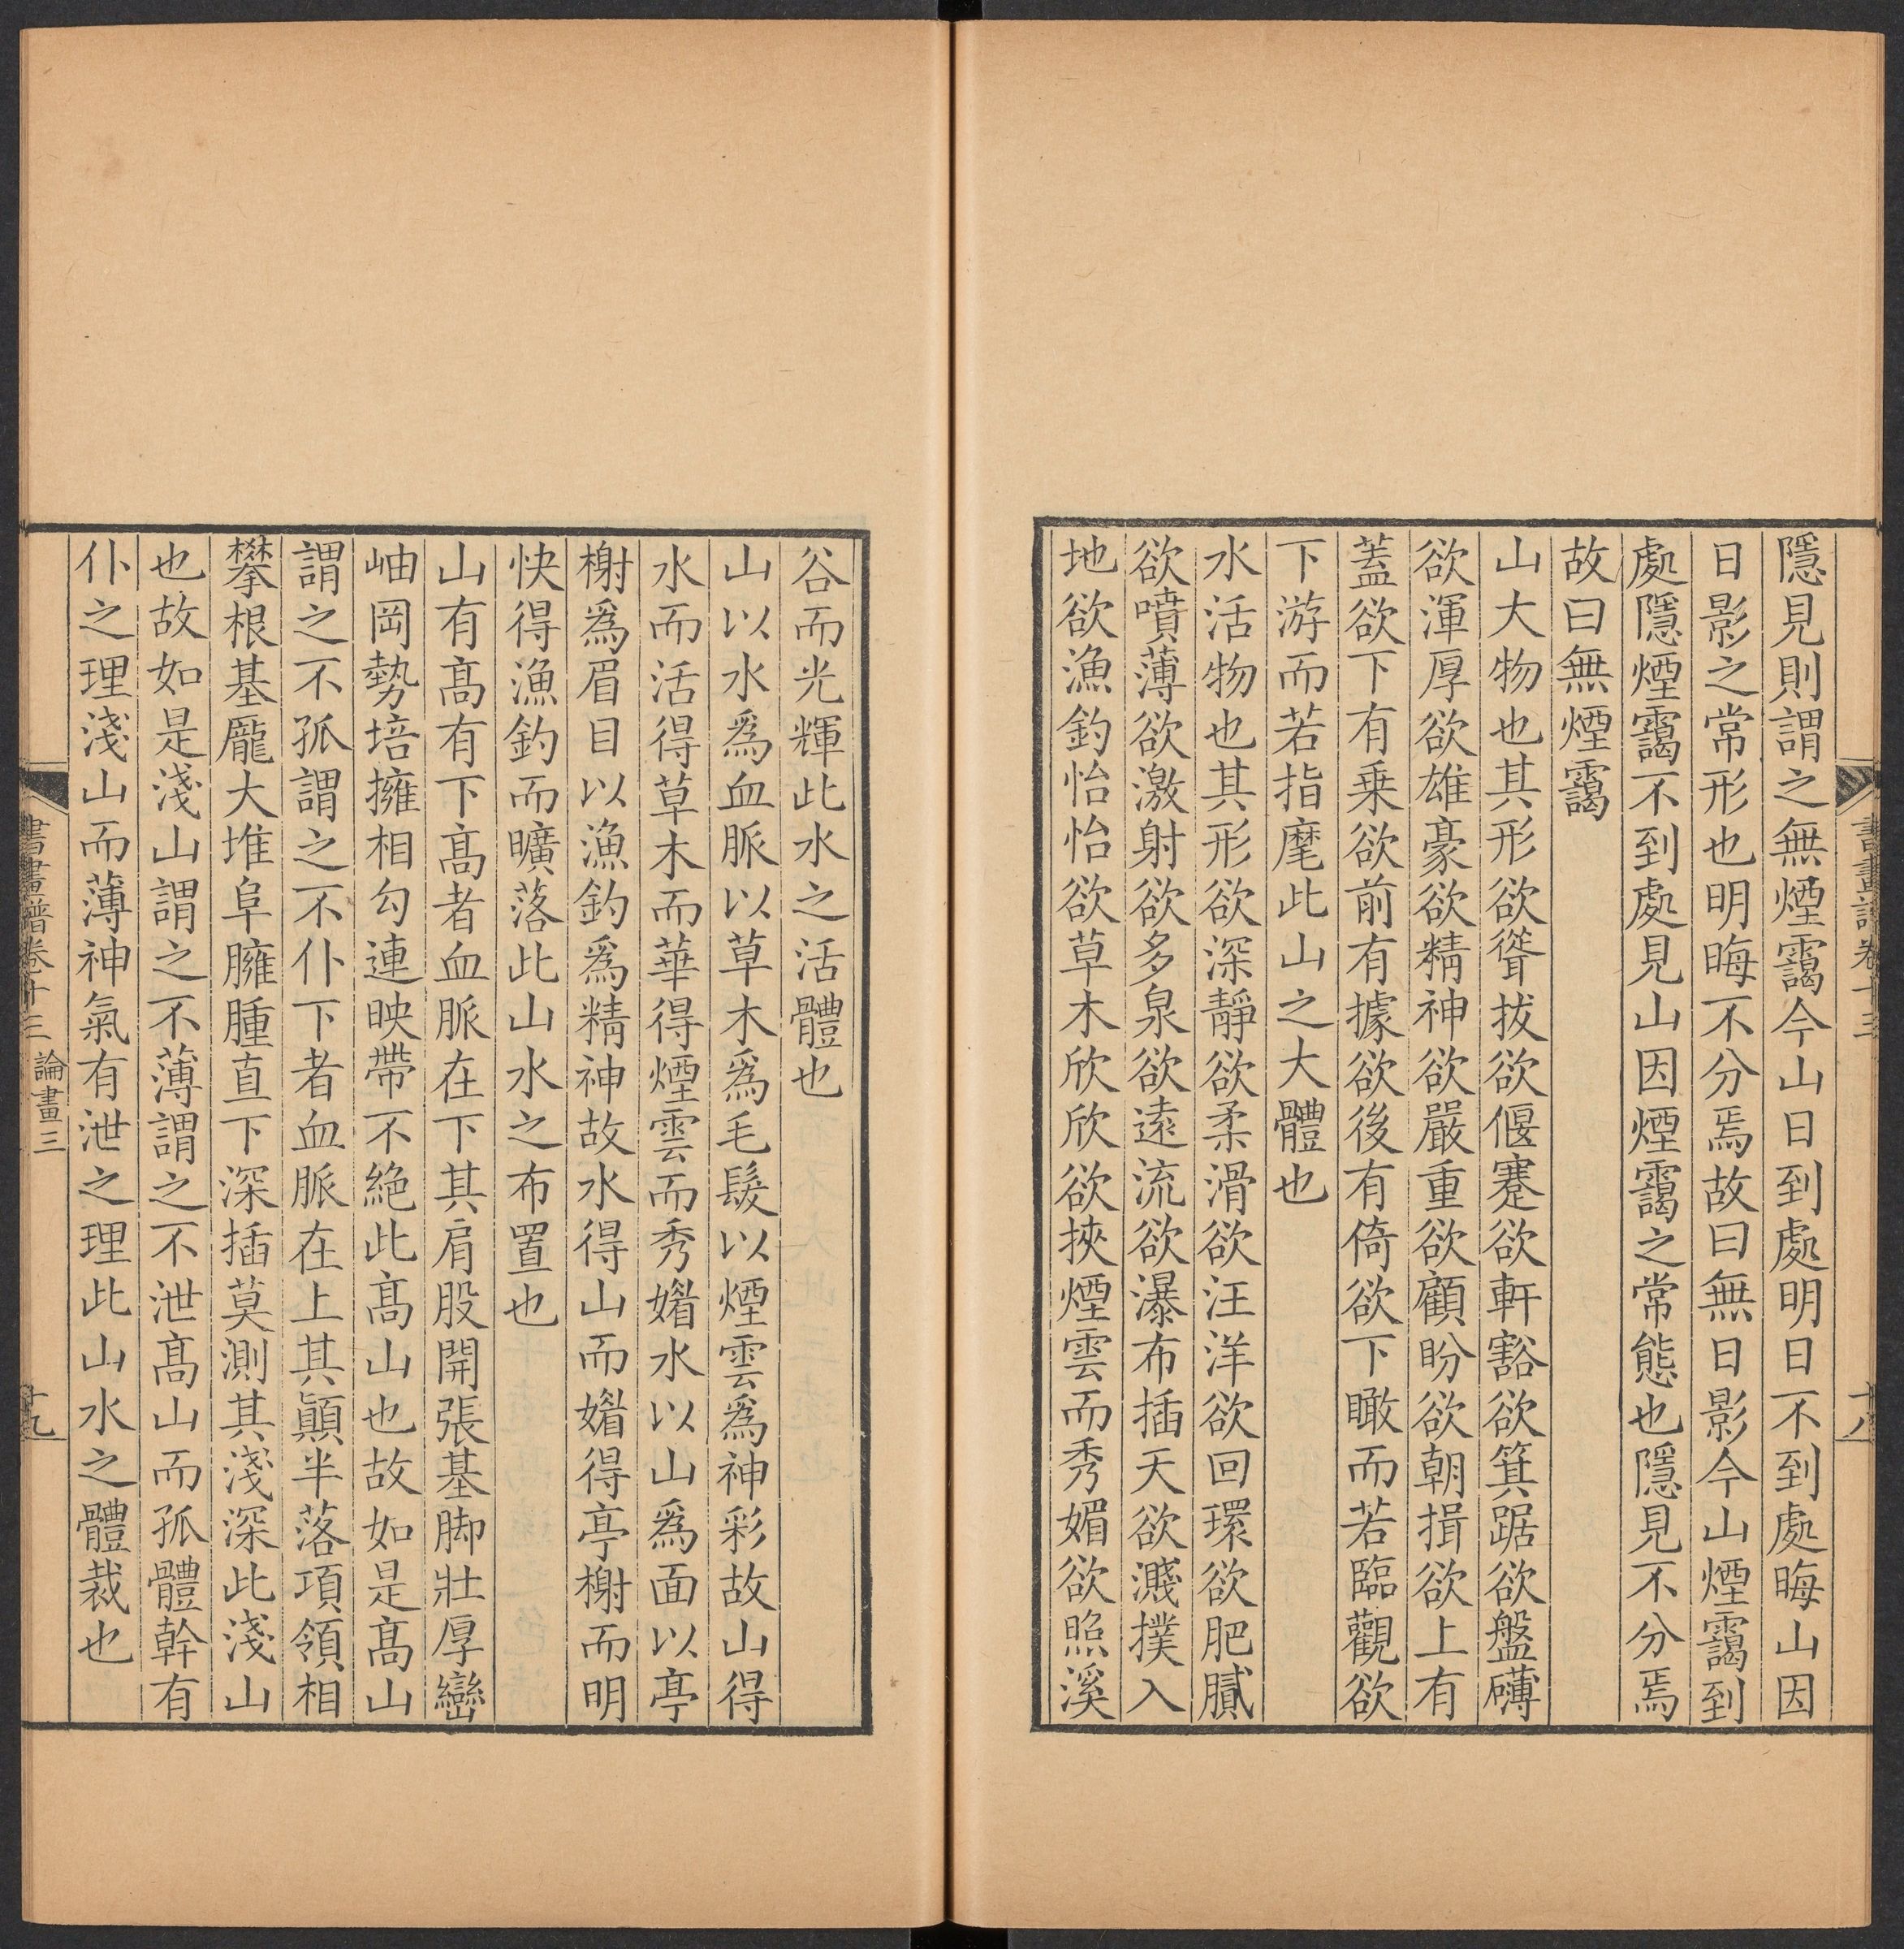 書畫譜卷十三
十八
隱見則謂之無煙靄今山日到處明日不到處晦山因
日影之常形也明晦不分焉故曰無日影今山煙靄到
處隱煙靄不到處見山因煙靄之常態也隱見不分焉
故曰無煙靄
山大物也其形欲聳拔欲偃蹇欲軒豁欲箕踞欲盤礴
欲渾厚欲雄豪欲精神欲嚴重欲顧盼欲朝揖欲上有
蓋欲下有乗欲前有據欲後有倚欲下瞰而若臨觀欲
下游而若指麾此山之大體也
水活物也其形欲深靜欲柔滑欲汪洋欲回環欲肥膩
欲噴薄欲激射欲多泉欲遠流欲瀑布插天欲濺撲入
地欲漁釣怡怡欲草木欣欣欲挾煙雲而秀媚欲照溪
谷而光輝此水之活體也
山以水爲血脈以草木爲毛髮以煙雲爲神彩故山得
水而活得草木而華得煙雲而秀媚水以山爲面以亭
榭爲眉目以漁釣爲精神故水得山而媚得亭榭而明
快得漁釣而曠落此山水之布置也
山有髙有下髙者血脈在下其肩股開張基脚壯厚巒
岫岡勢培擁相勾連映帶不絶此髙山也故如是髙山
謂之不孤謂之不仆下者血脈在上其顚半落項領相
攀根基龎大堆阜臃腫直下深插莫測其淺深此淺山
也故如是淺山謂之不薄謂之不泄髙山而孤體幹有
仆之理淺山而薄神氣有泄之理此山水之體裁也
書畫譜卷十三 論畫三
十九